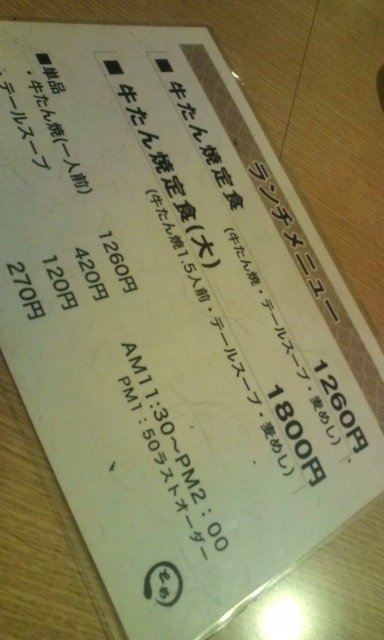 ランチメニュー
■ 牛たん焼定食 1260円
(牛たん焼・テールスープ・麦めし)
■ 牛たん焼定食(大) 1800円
(牛たん焼1.5人前・テールスープ・麦めし)
■単品
・牛たん焼(一人前) 1260円
・テールスープ 420円
120円
270円
AM11:30～PM2:00
PM1:50ラストオーダー